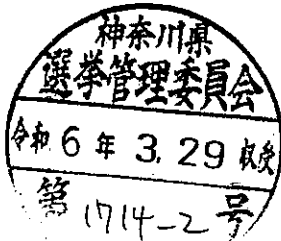 神奈川県
選挙管理委員会
令和 6 年 3. 29 収受
第 1714-2 号